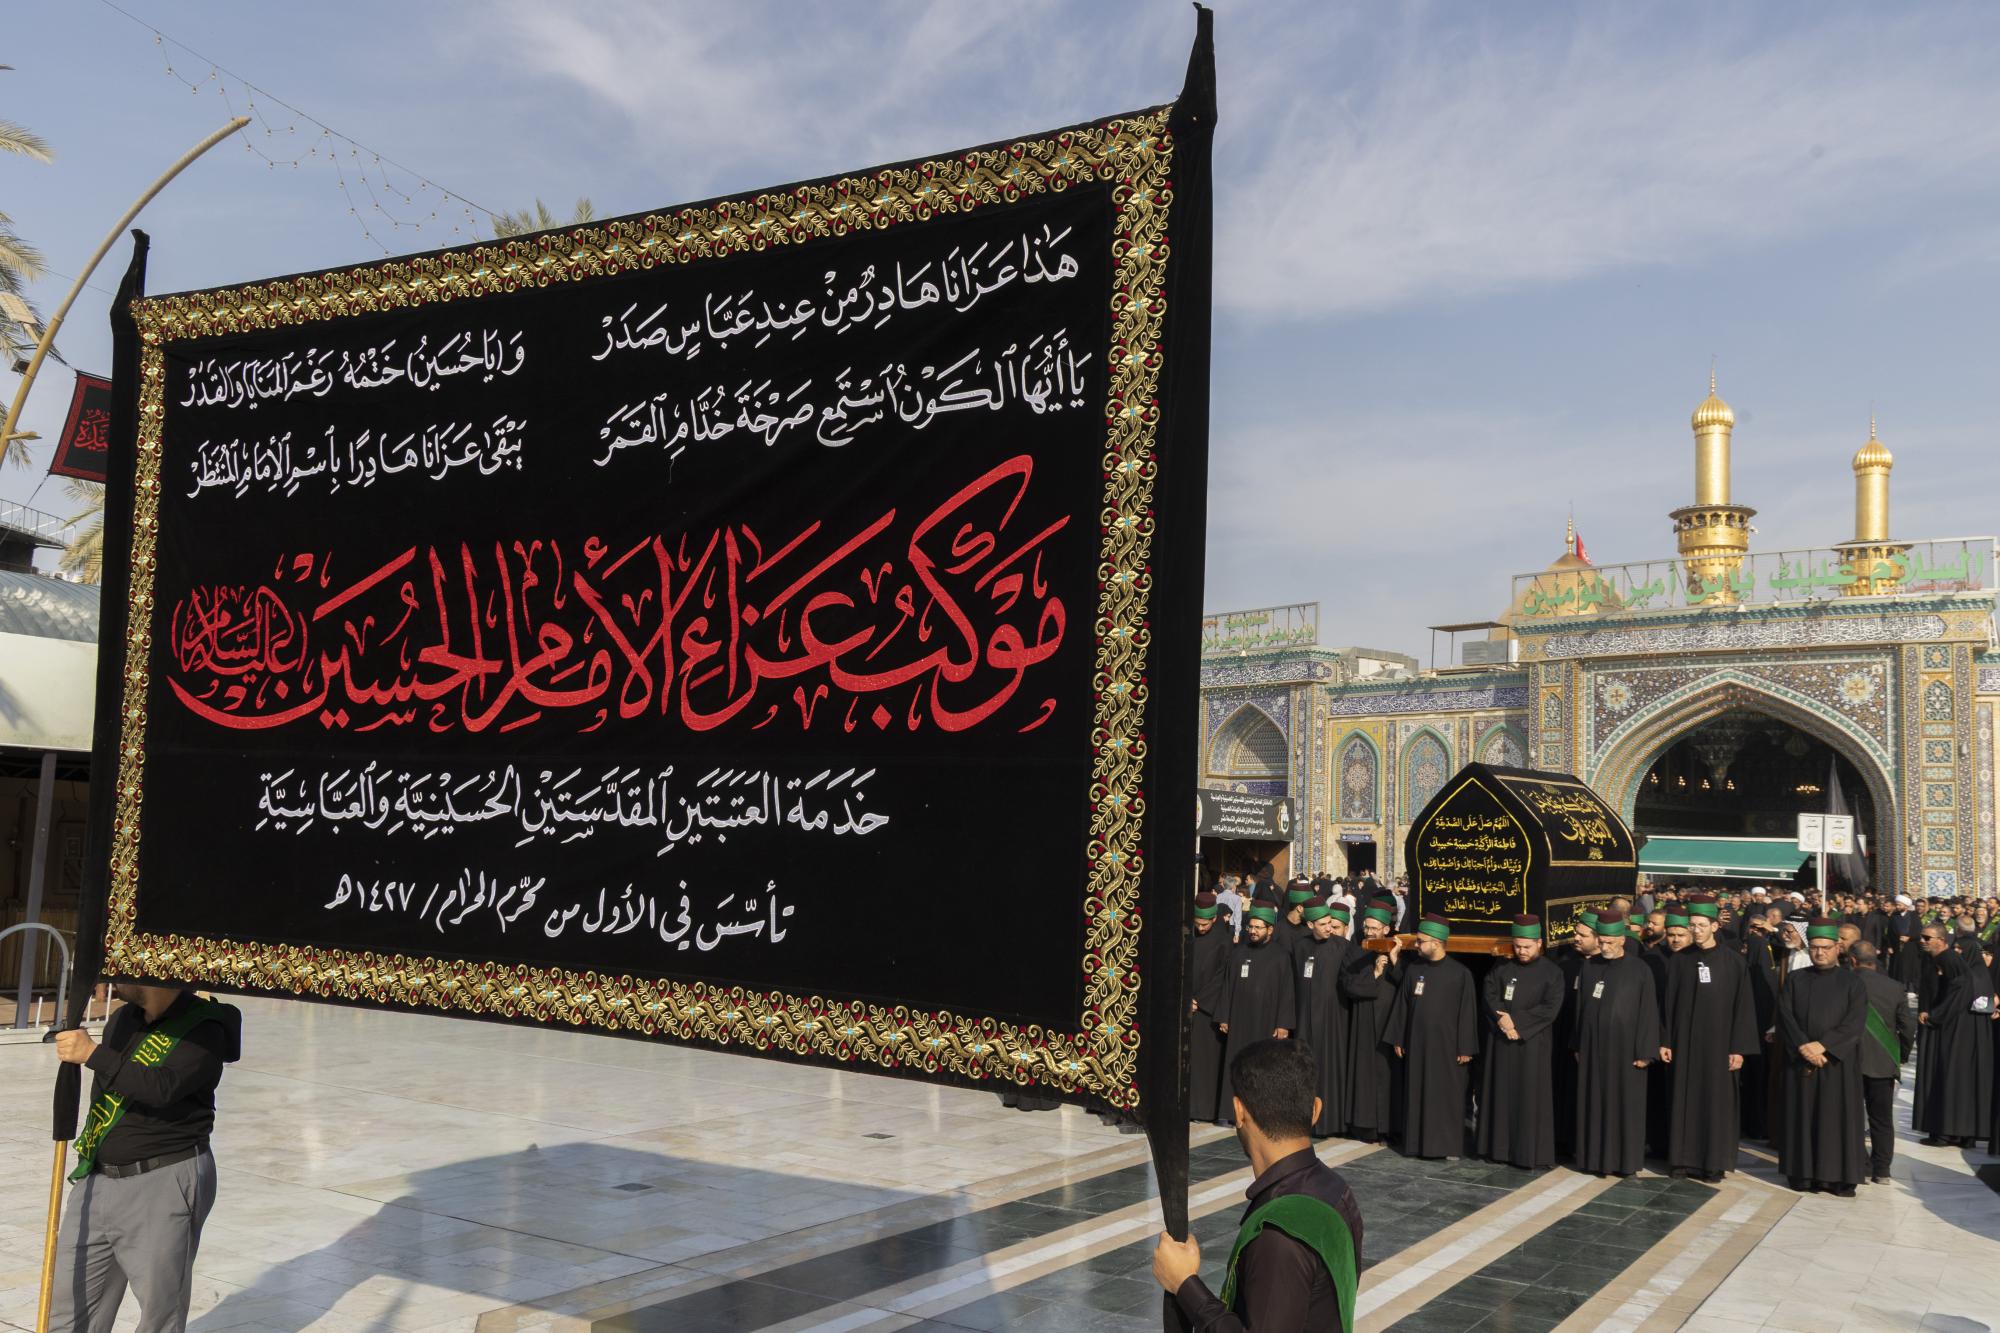 هَذا عَزَانَا هَادِرٌ مِنْ عِندِ عَبَّاسٍ صَدَرْ
وَايَا حُسَينُ خَتْمُهُ رَغْمَ ٱلمَنَايَا وَالقَدَرْ
يَا أَيُّهَا ٱلكَوْنُ ٱسْتَمِع صَرخَةَ خُدَّامِ ٱلقَمَرْ
يَبْقَىٰ عَزَانَا هَادِرًا بِٱسْمِ ٱلإِمَامِ ٱلمُنتَظَرْ
مَوْكبُ عَزَاءِ الأِمَامِ الحُسَين (عليه السلام)
خَدَمَة العَتَبَتَينِ ٱلمُقَدَّسَتَيْنِ الحُسَيْنِيَّةِ وَٱلعَبَّاسِيَّةِ
تأسّسَ في الأول من محرّم الحرام / ١٤٢٧هـ
السلام عليك يابن أمير المؤمنين
اَللّهُمَّ صَلِّ عَلَى الصِّدّيقَةِ
فاطِمَةَ الزَّكِيَّةِ حَبيبَةِ حَبيبِكَ
وَنَبِيِّكَ، وَأُمِّ أَحِبّائِكَ وَأَصْفِيائِكَ،
الَّتِي انْتَجَبْتَها وَفَضَّلْتَها وَاخْتَرْتَها
عَلى نِساءِ الْعالَمينَ